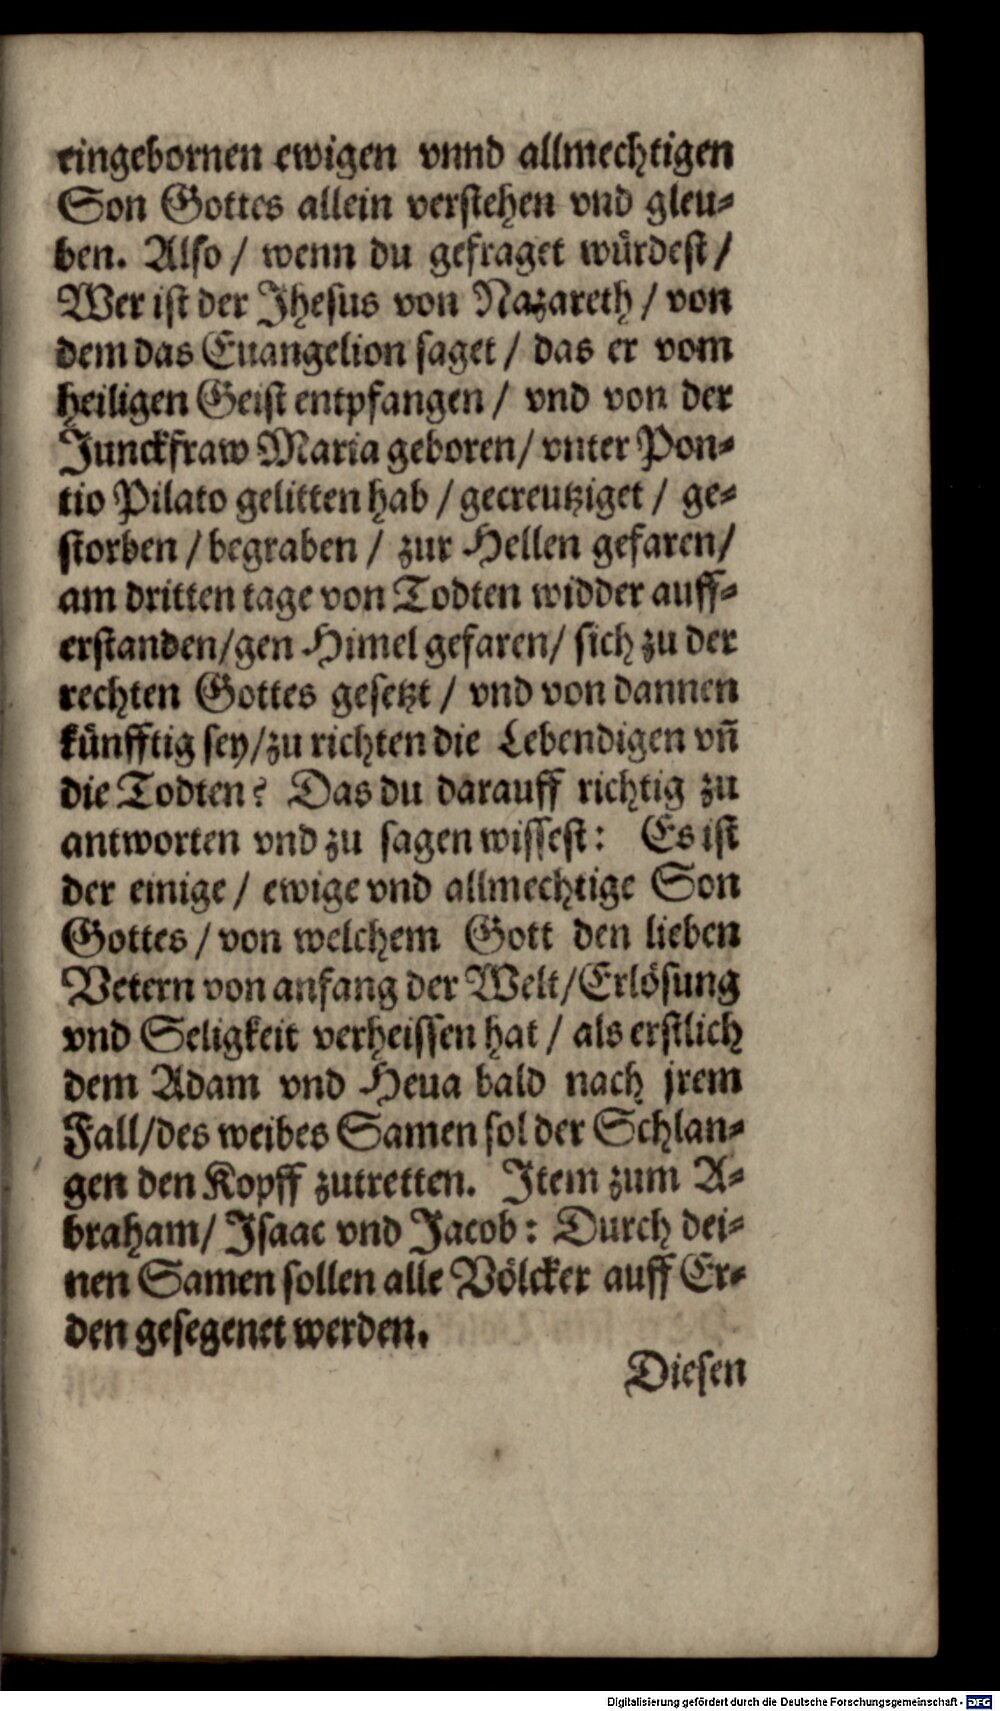 eingebornen ewigen vnnd allmechtigen
Son Gottes allein verstehen vnd gleu-
ben. Also / wenn du gefraget würdest /
Wer ist der Jhesus von Nazareth / von
dem das Euangelion saget / das er vom
heiligen Geist entpfangen / vnd von der
Junckfraw Maria geboren / vnter Pon-
tio Pilato gelitten hab / gecreutziget / ge-
storben / begraben / zur Hellen gefaren /
am dritten tage von Todten widder auff-
erstanden / gen Himel gefaren / sich zu der
rechten Gottes gesetzt / vnd von dannen
künfftig sey / zu richten die Lebendigen vñ
die Todten? Das du darauff richtig zu
antworten vnd zu sagen wissest: Es ist
der einige / ewige vnd allmechtige Son
Gottes / von welchem Gott den lieben
Vetern von anfang der Welt / Erlösung
vnd Seligkeit verheissen hat / als erstlich
dem Adam vnd Heua bald nach jrem
Fall / des weibes Samen sol der Schlan-
gen den Kopff zutretten. Item zum A-
braham / Isaac vnd Jacob: Durch dei-
nen Samen sollen alle Völcker auff Er-
den gesegenet werden.
Diesen
Digitalisierung gefördert durch die Deutsche Forschungsgemeinschaft - DFG